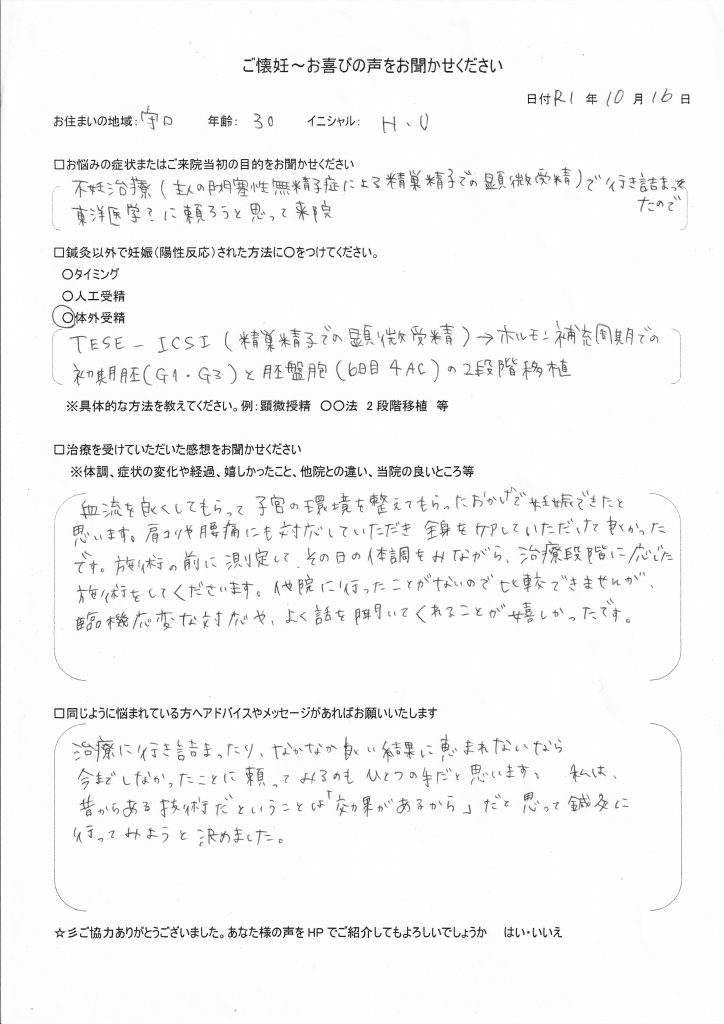 ご懐妊～お喜びの声をお聞かせください
日付 R1 年 10 月 16 日
お住まいの地域：守口 年齢： 30 イニシャル： H.U
□お悩みの症状またはご来院当初の目的をお聞かせください
不妊治療(主人の閉塞性無精子症による精巣精子での顕微受精)で行き詰まって
たので
東洋医学？に頼ろうと思って来院
□鍼灸以外で妊娠(陽性反応)された方法に〇をつけてください。
〇タイミング
〇人工受精
〇体外受精
TESE-ICSI(精巣精子での顕微受精)→ホルモン補充周期での
初期胚(G1・G3)と胚盤胞(6日目4AC)の2段階移植
※具体的な方法を教えてください。例：顕微授精 〇〇法 2段階移植 等
□治療を受けていただいた感想をお聞かせください
※体調、症状の変化や経過、嬉しかったこと、他院との違い、当院の良いところ等
血流を良くしてもらって子宮の環境を整えてもらったおかげで妊娠できたと
思います。肩コリや腰痛にも対応していただき全身をケアしていただけて良かった
です。施術の前に測定して、その日の体調をみながら、治療段階に応じた
施術をしてくださいます。他院に行ったことがないので比較できませんが、
臨機応変な対応や、よく話を聞いてくれることが嬉しかったです。
□同じように悩まれている方へアドバイスやメッセージがあればお願いいたします
治療に行き詰まったり、なかなか良い結果に恵まれないなら
今までしなかったことに頼ってみるのもひとつの手だと思います。私は、
昔からある技術だということは「効果があるから」だと思って鍼灸に
行ってみようと決めました。
☆彡ご協力ありがとうございました。あなた様の声をHPでご紹介してもよろしいでしょうか はい・いいえ